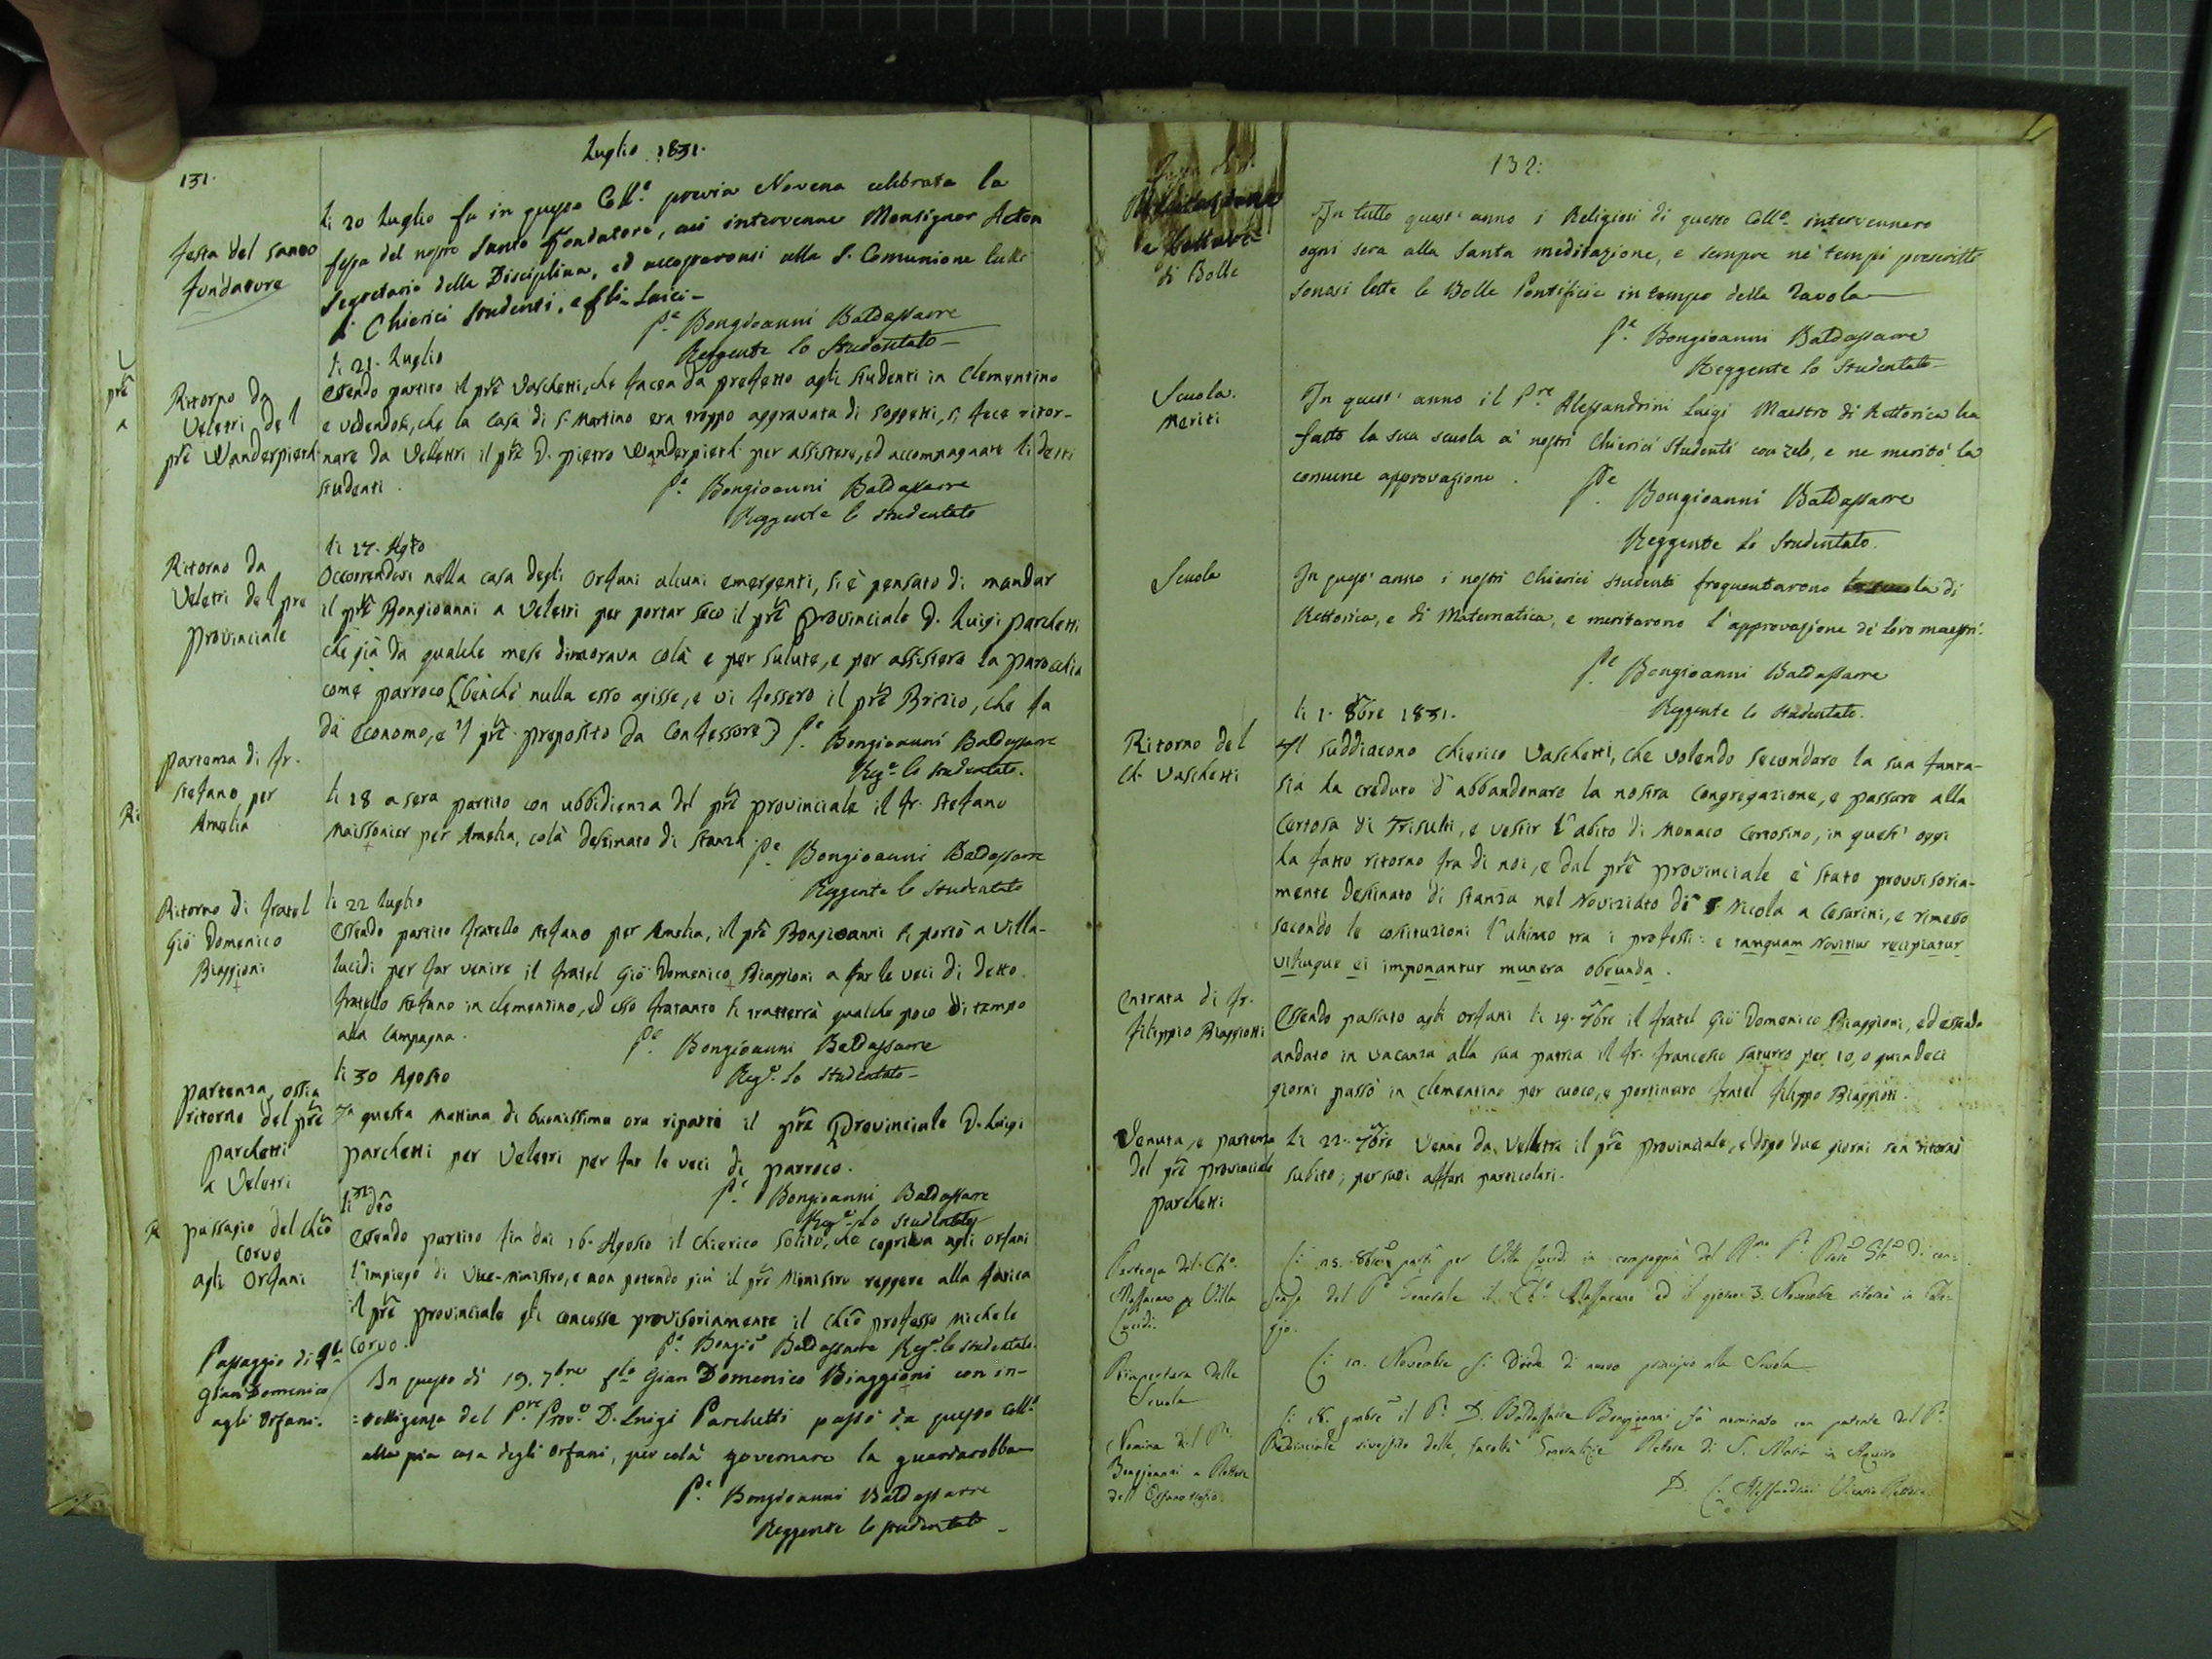 131.
Luglio 1831.
festa del santo
fundatore
li 20 Luglio fu in questo Coll.o previa Novena celebrata la
festa del nostro Santo Fondatore, cui intervenne Monsignor Acton
Segretario della Disciplina, ed accostaronsi alla S. Comunione tutti
i Chierici studenti, e flli Laici –
P.e Bongioanni Baldassarre
Reggente lo Studentato –
li 21. Luglio
Ritorno da
Veletri del
pře Wanderpieth
Essendo partito il pře Vaschetti, che facea da prefetto agli studenti in Clementino
e vedendosi, che la casa di S. Martino era troppo aggravata di soggetti, si fece ritor-
nare da Vellettri il pře D. pietro Wanderpieth per assistere, ed accompagnare li detti
studenti.
P.e Bongioanni Baldassarre
Reggente lo studentato
li 27. Agto
Ritorno da
Veletri del pre
provinciale
Occorrendosi nella casa degli Orfani alcuni emergenti, si è pensato di mandar
il pře Bongioanni a Veletri per portar seco il pře provinciale D. Luigi parchetti
che già da qualche mese dimorava colà e per salute, e per assistere la parocchia
come parroco (benchè nulla esso agisse, e vi fossero il pře Brizio, che fa
da Economo, e 'l pře preposito da Confessore) P.e Bongioanni Baldassarre
Reg.e lo studentato.
partenza di fr.
stefano per
Amelia
li 28 a sera partito con ubbidienza del pře provinciale il fr. stefano
Maissonier per Amelia, colà destinato di stanza.
P.e Bongioanni Baldassarre
Reggente lo studentato
Ritorno di fratel
Gio Domenico
Biaggioni
li 22 luglio
Essendo partito fratello stefano per Amelia, il pře Bongioanni si portò a Villa-
lucidi per far venire il fratel Giō Domenico Biaggioni a far le veci di detto
fratello stefano in clementino, ed esso fratanto si tratterrà qualche poco di tempo
alla campagna.
P.e Bongioanni Baldassarre
Reg.e lo studentato –
li 30 Agosto
partenza, ossia
ritorno del pře
parchetti
a Veletri
In questa mattina di buonissima ora ripartì il pře Provinciale D. Luigi
parchetti per Veletri per far le veci di parroco.
P.e Bongioanni Baldassare
Reg.e lo studentato
li 31 dō
passagio del Chco
Corvo
agli Orfani
Essendo partito fin dai 16. Agosto il chierico Solito, che copriva agli orfani
l'impiego di Vice-ministro, e non potendo più il pře Ministro reggere alla fatica
il pře provinciale gli concesse provisoriamente il chco professo Michele
Corvo.
P.e Bongiō Baldassarre Reg.e lo studentato.
Passaggio di fllo
Gian Domenico
agli Orfani.
In questo dì 19. 7bre fllo Gian Domenico Biaggioni con in-
=telligenza del P.re Prov.e D. Luigi Parchetti passò da questo Coll.o
alla pia casa degli Orfani, per colà governare la guardarobba
P.e Bongioanni Baldassarre
Reggente lo studentato –
132.
Meditazione
e Lettura
di Bolle
In tutto quest' anno i Religiosi di questo Coll.o intervennero
ogni sera alla Santa meditazione, e sempre ne' tempi prescritti
sonosi lette le Bolle Pontificie in tempo della Tavola
P.e Bongioanni Baldassarre
Reggente lo Studentato –
Scuola.
Meriti
In quest' anno il P.re Alessandrini Luigi Maestro di Rettorica ha
fatto la sua scuola a' nostri Chierici Studenti con zelo, e ne meritò la
comune approvazione.
P.e Bongioanni Baldassarre
Reggente lo Studentato.
Scuola
In quest' anno i nostri Chierici studenti frequentarono la scuola di
Rettorica, e di Matematica, e meritarono l'approvazione de' loro maestri.
P.e Bongioanni Baldassarre
Reggente lo studentato.
li 1. 8bre 1831.
Ritorno del
Ch. Vaschetti
Il suddiacono chierico Vaschetti, che volendo secondare la sua fanta-
sia ha creduto d'abbandonare la nostra Congregazione, e passare alla
Certosa di Trisulti, e vestir l'abito di Monaco Certosino, in quest' oggi
ha fatto ritorno fra di noi, e dal pře provinciale è stato provvisoria-
mente destinato di stanza nel Noviziato di S. Nicola a Cesarini, e rimesso
secondo le costituzioni l'ultimo tra i professi: e tamquam Novitius recipiatur
viliaque ei imponantur munera obeunda.
Entrata di fr.
filippo Biaggiotti
Essendo passato agli orfani li 19. 7bre il fratel Giō Domenico Biaggioni, ed essendo
andato in vacanza alla sua patria il fr. francesco saturro per 10, o quindeci
giorni passò in clementino per cuoco, e portinaro fratel filippo Biaggiotti.
Venuta, e partenza
del pře provinciale
parchetti
li 22. 7bre venne da Velletri il pře provinciale, e dopo due giorni sen ritornò
subito, per suoi affari particolari.
Partenza del Ch.o
Massacano p Villa
Lucidi.
li 25. 8bre partì per Villa Lucidi in compagnia del R.mo P. di con-
senso del P.e Generale il Ch.o Massacano ed il giorno 3. Novembre ritornò in Colle-
gio.
Riapertura della
Scuola
Novembre si diede di nuovo principio alla Scuola
Nomina del P.e
Bongioanni a Rettore
dell'Orfanotrofio
li 18. 9mbre il P. D. Baldassarre Bongioanni fù nominato con patente del P.
Provinciale rivestito delle facoltà Generalizie Rettore di S. Maria in Aquiro
D. L. Alessandrini Vicerettore